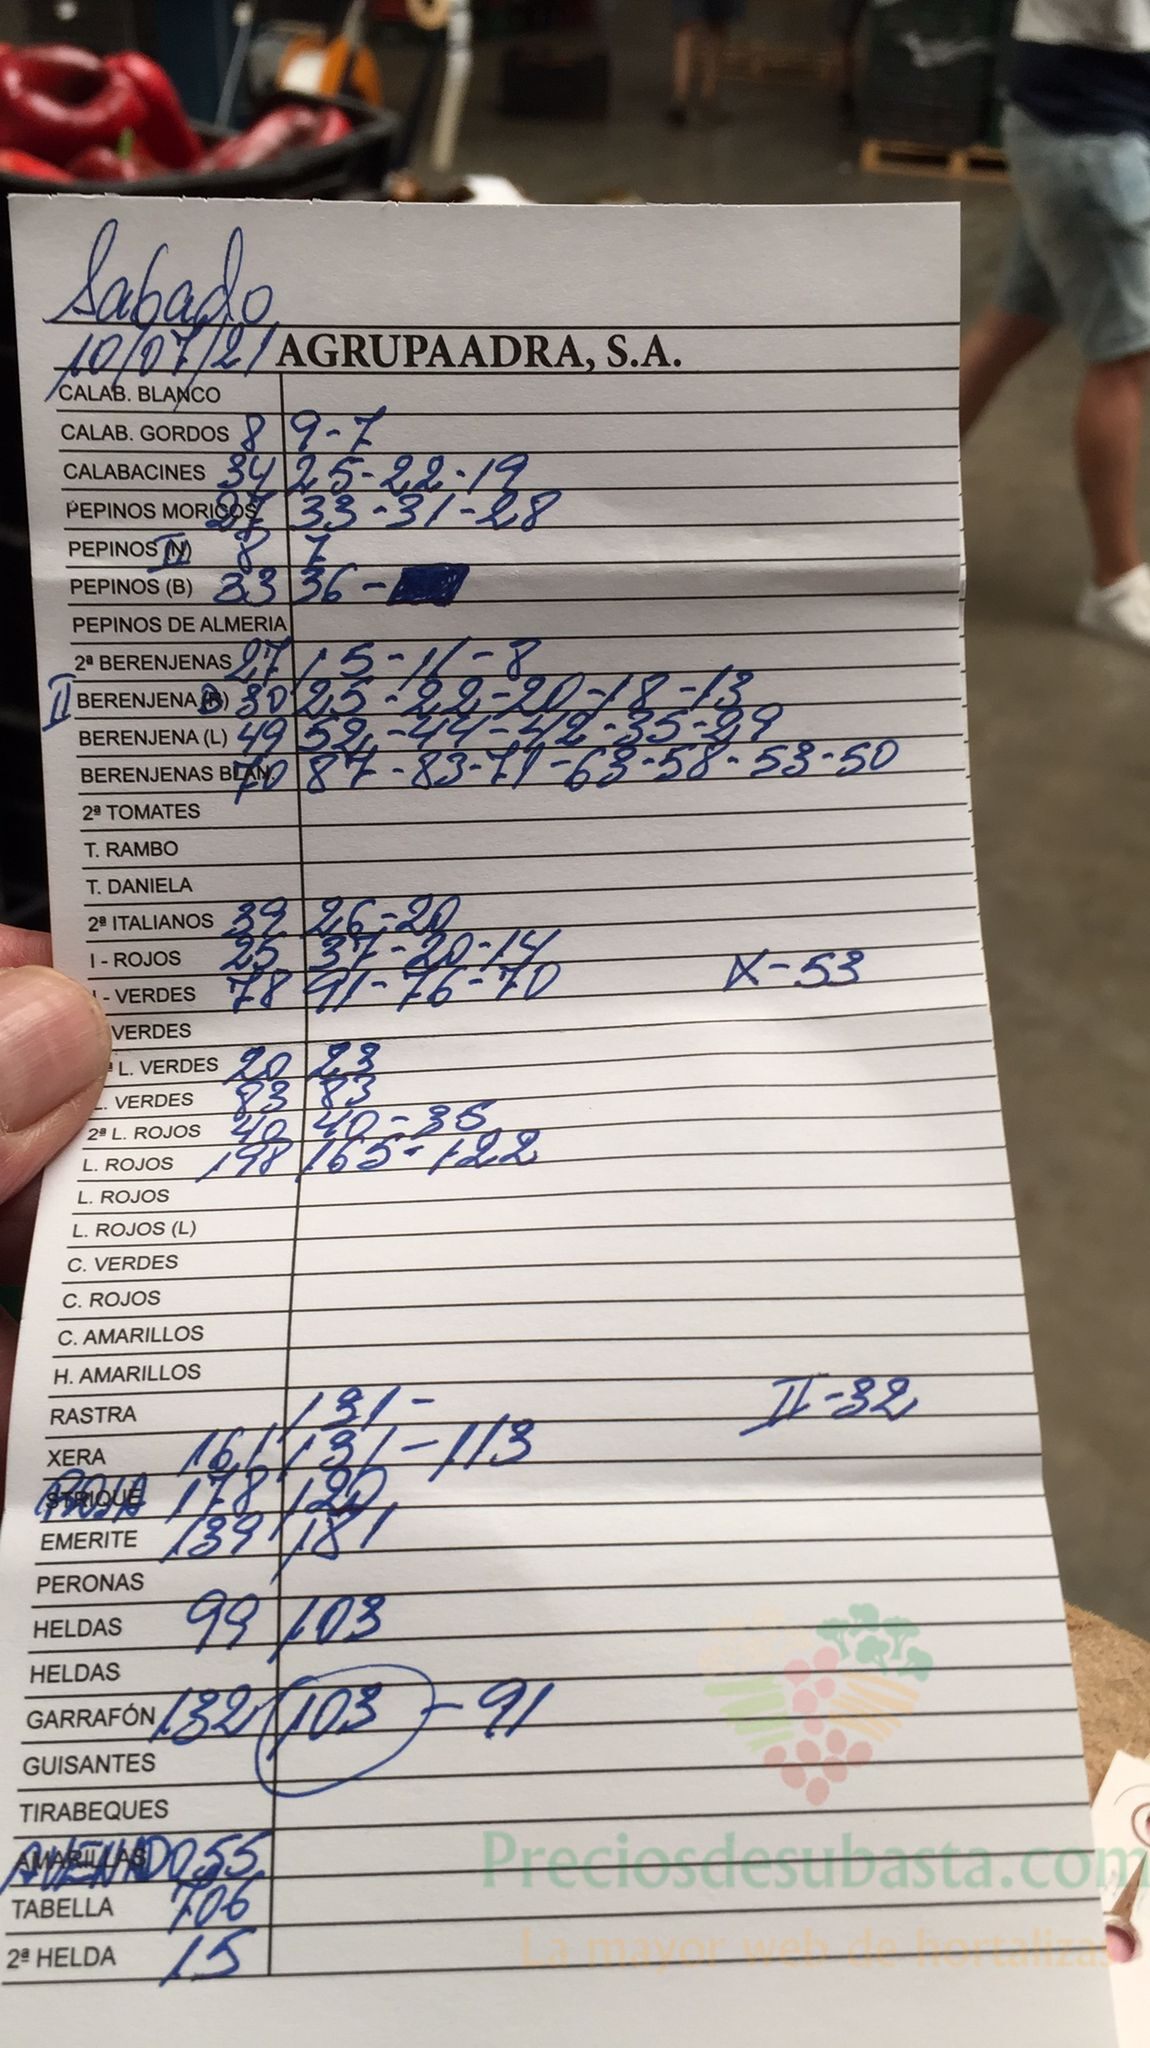 Sabado
10/07/21 AGRUPAADRA, S.A.
CALAB. BLANCO
CALAB. GORDOS 8 9-7
CALABACINES 34 25-22-19
PEPINOS MORICOS 27 33-31-28
PEPINOS II 8 7
PEPINOS (B) 33 36-
PEPINOS DE ALMERIA
2ª BERENJENAS 27 15-11-8
II BERENJENA 30 25-22-20-18-13
BERENJENA (L) 49 52-44-42-35-29
BERENJENAS BLAN. 70 87-83-71-63-58-53-50
2ª TOMATES
T. RAMBO
T. DANIELA
2ª ITALIANOS 39 26-20
I - ROJOS 25 37-20-14
- VERDES 78 91-76-70 X-53
VERDES
L. VERDES 20 23
L. VERDES 83 83
2ª L. ROJOS 40 40-35
L. ROJOS 198 165-122
L. ROJOS
L. ROJOS (L)
C. VERDES
C. ROJOS
C. AMARILLOS
H. AMARILLOS
RASTRA 131- II-32
XERA 161 131-113
STRIQUE 178 120
EMERITE 139 181
PERONAS
HELDAS 99 103
HELDAS
GARRAFÓN 132 103-91
GUISANTES
TIRABEQUES
AMARILLAS 055
TABELLA 706
2ª HELDA 15
Preciosdesubasta.com
La mayor web de hortalizas